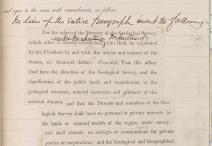 and agree to the same with amendments, as follows:
In lieu of the entire Paragraph insert the following:
For the salary of the Director of the Geological Survey,
under the Interior Department
which office is hereby established, who shall be appointed
by the President by and with the advice and consent of the
Senate, six thousand dollars: Provided, That this officer
shall have the direction of the Geological Survey, and the
classification of the public lands and examination of the
geological structure, mineral resources, and products of the
national domain, and that the Director and members of the Geo-
logical Survey shall have no personal or private interests in
the lands or mineral wealth of the region under survey,
and shall execute no surveys or examinations for private
parties or corporations; and the Geological and Geographical